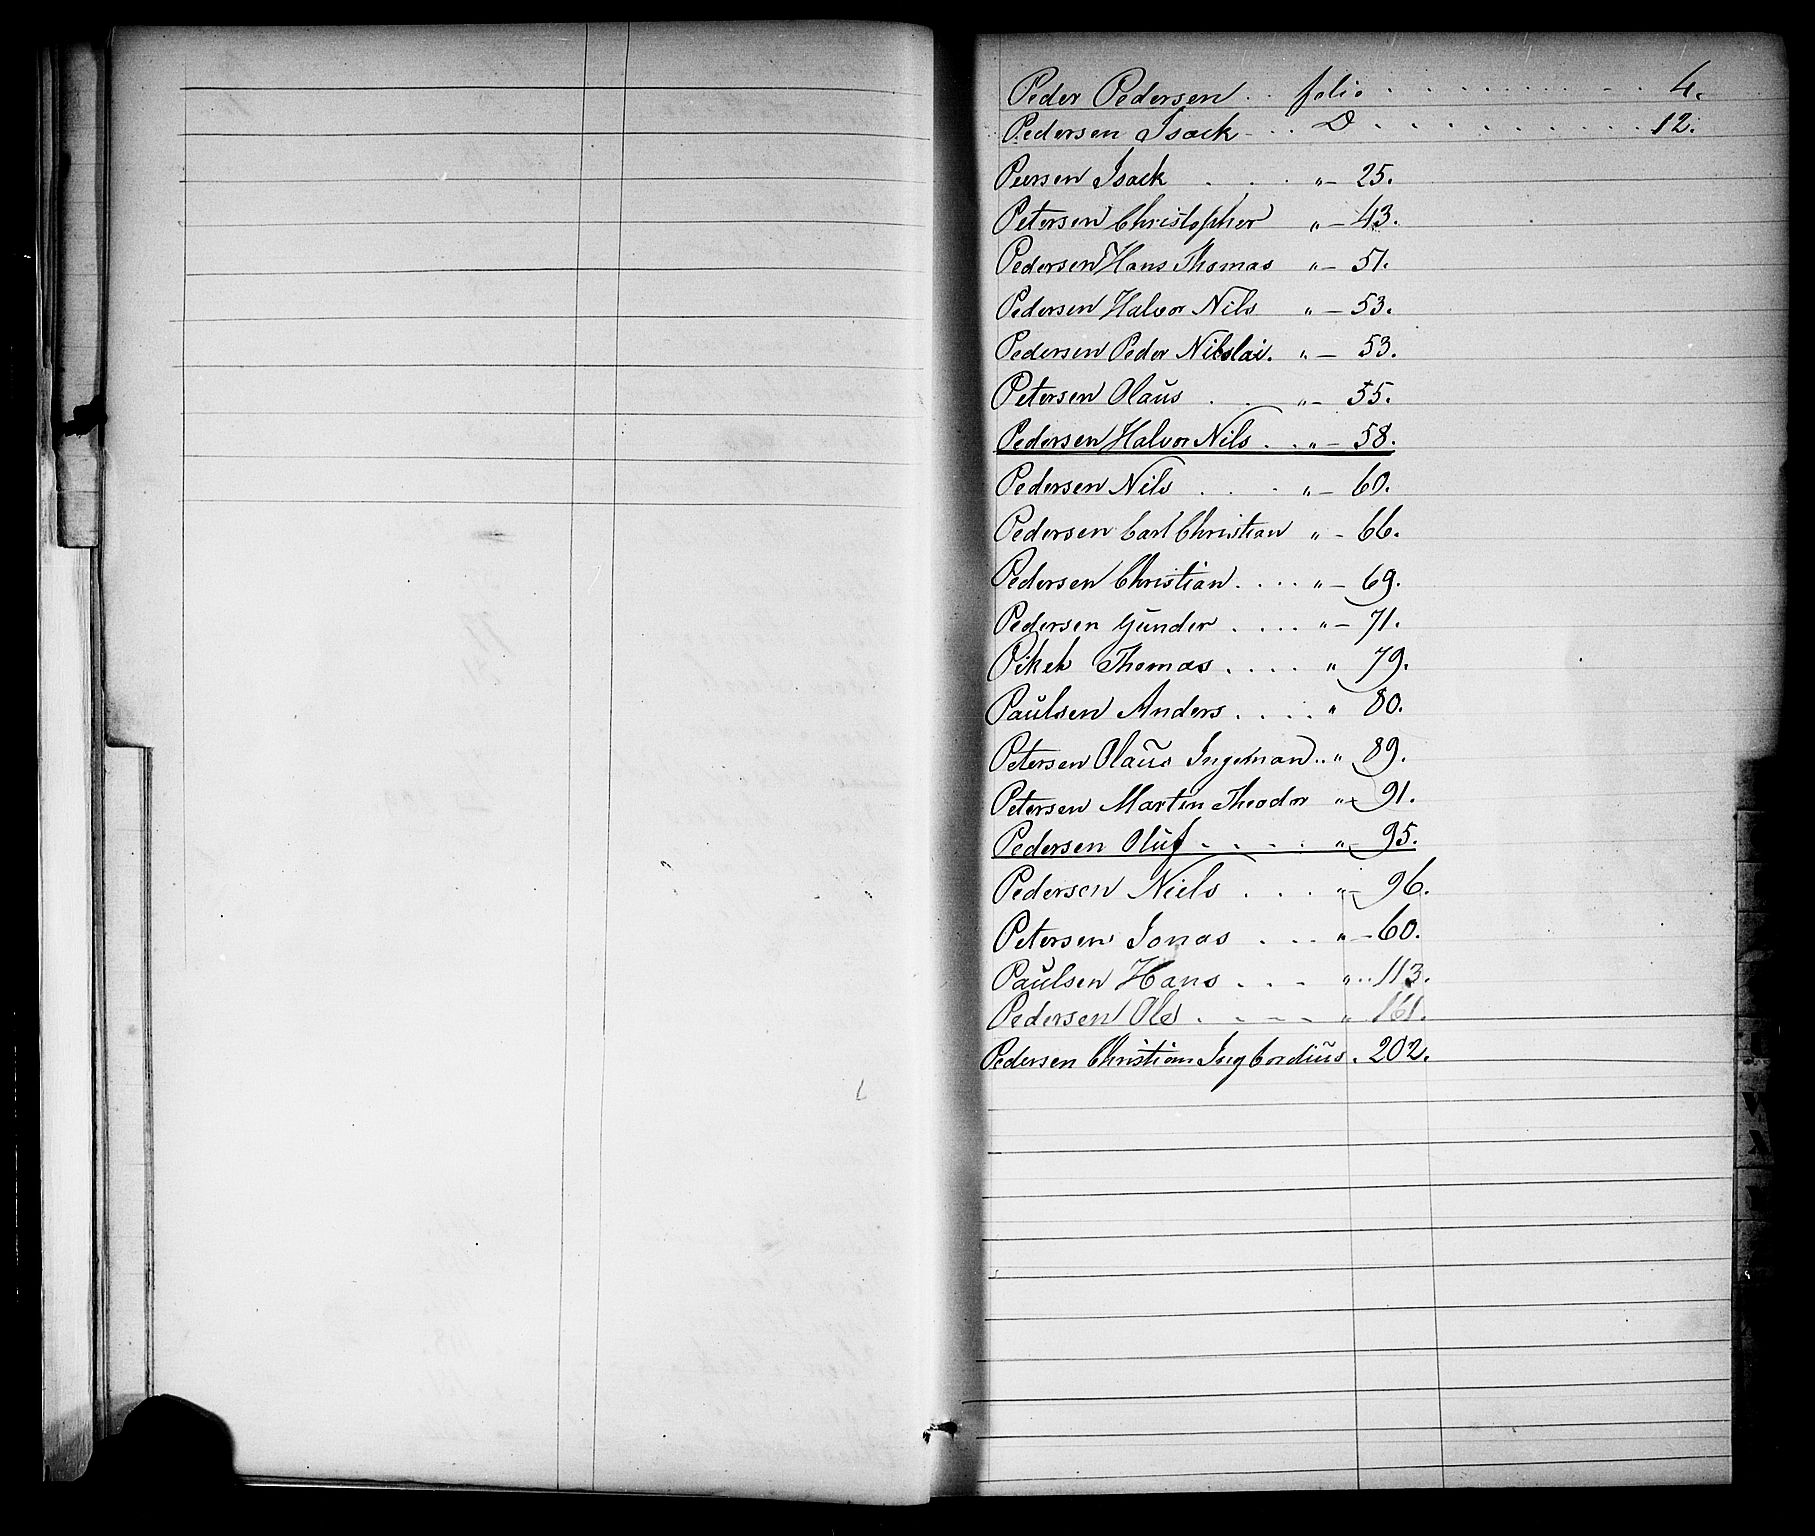 Peder Pedersen . . folio . . . . . . . . 4.
Pedersen Isack . . . Do . . . . . . . . 12.
Peersen Isack . . . " — 25.
Petersen Christopher " — 43.
Pedersen Hans Thomas " — 51.
Pedersen Halvor Nils " — 53.
Pedersen Peder Nikolai. " — 53.
Petersen Olaus . . " — 55.
Pedersen Halvor Nils . . " — 58.
Pedersen Nils . . . " — 60.
Pedersen Carl Christian " — 66.
Pedersen Christian . . . . " — 69.
Pedersen Gunder . . . . " — 71.
Thomas . . . . " 79.
Paulsen Anders . . . . " 80.
Petersen Olaus Ingeman . . " 89.
Petersen Martin Theodor " 91.
Pedersen Oluf . . . . " 95.
Pedersen Niels . . . " 96.
Petersen Jonas . . . " — 60.
Paulsen Hans . . . " . . 113.
Pedersen Ole . . . . " 161.
Pedersen Christian Ing Cordius . 202.
W
X